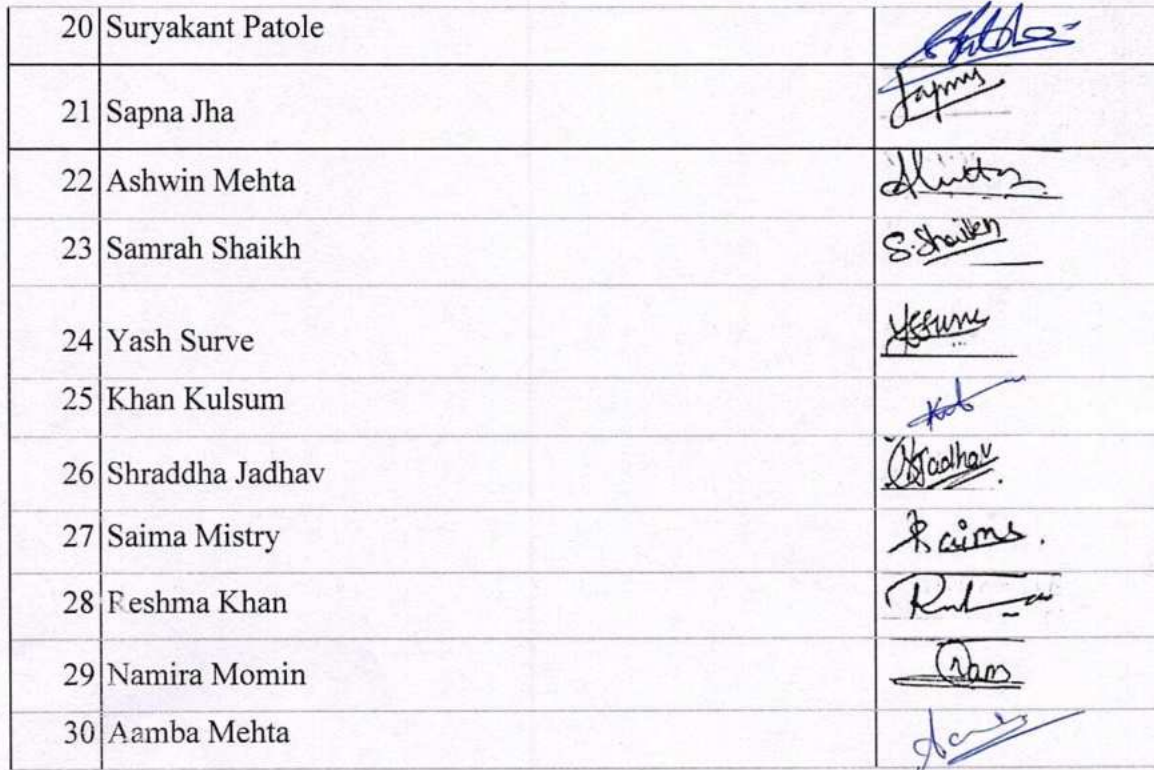 20 Suryakant Patole
21 Sapna Jha
22 Ashwin Mehta
23 Samrah Shaikh S.Shaikh
24 Yash Surve
25 Khan Kulsum
26 Shraddha Jadhav Jadhav
27 Saima Mistry Saima
28 Reshma Khan
29 Namira Momin
30 Aamba Mehta